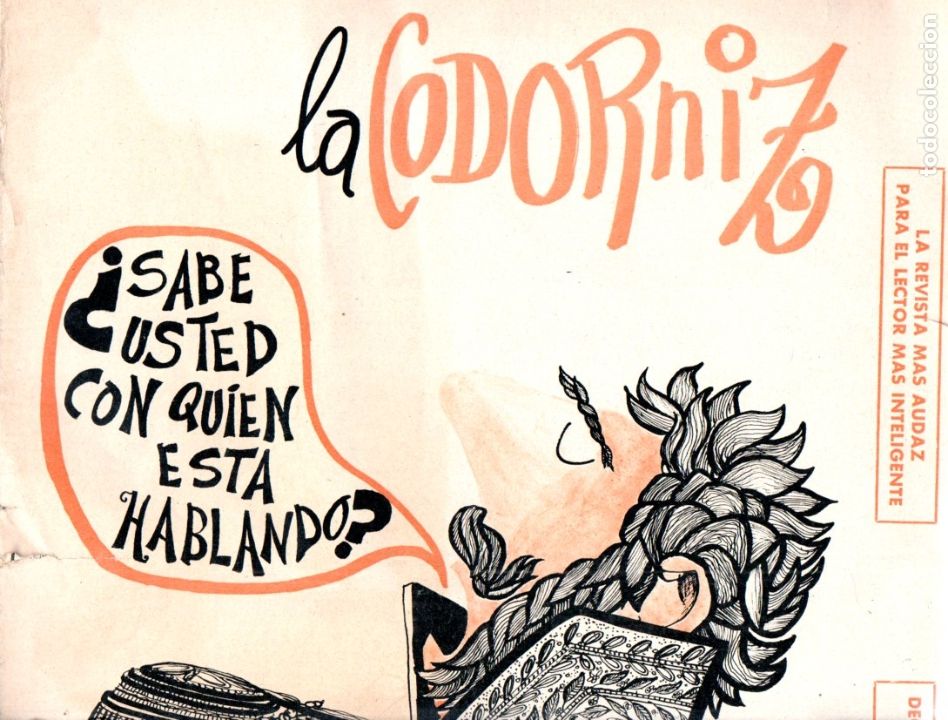 la CODORNiZ
¿SABE
USTED
CON QUIEN
ESTA
HABLANDO?
LA REVISTA MAS AUDAZ
PARA EL LECTOR MAS INTELIGENTE
todocoleccion